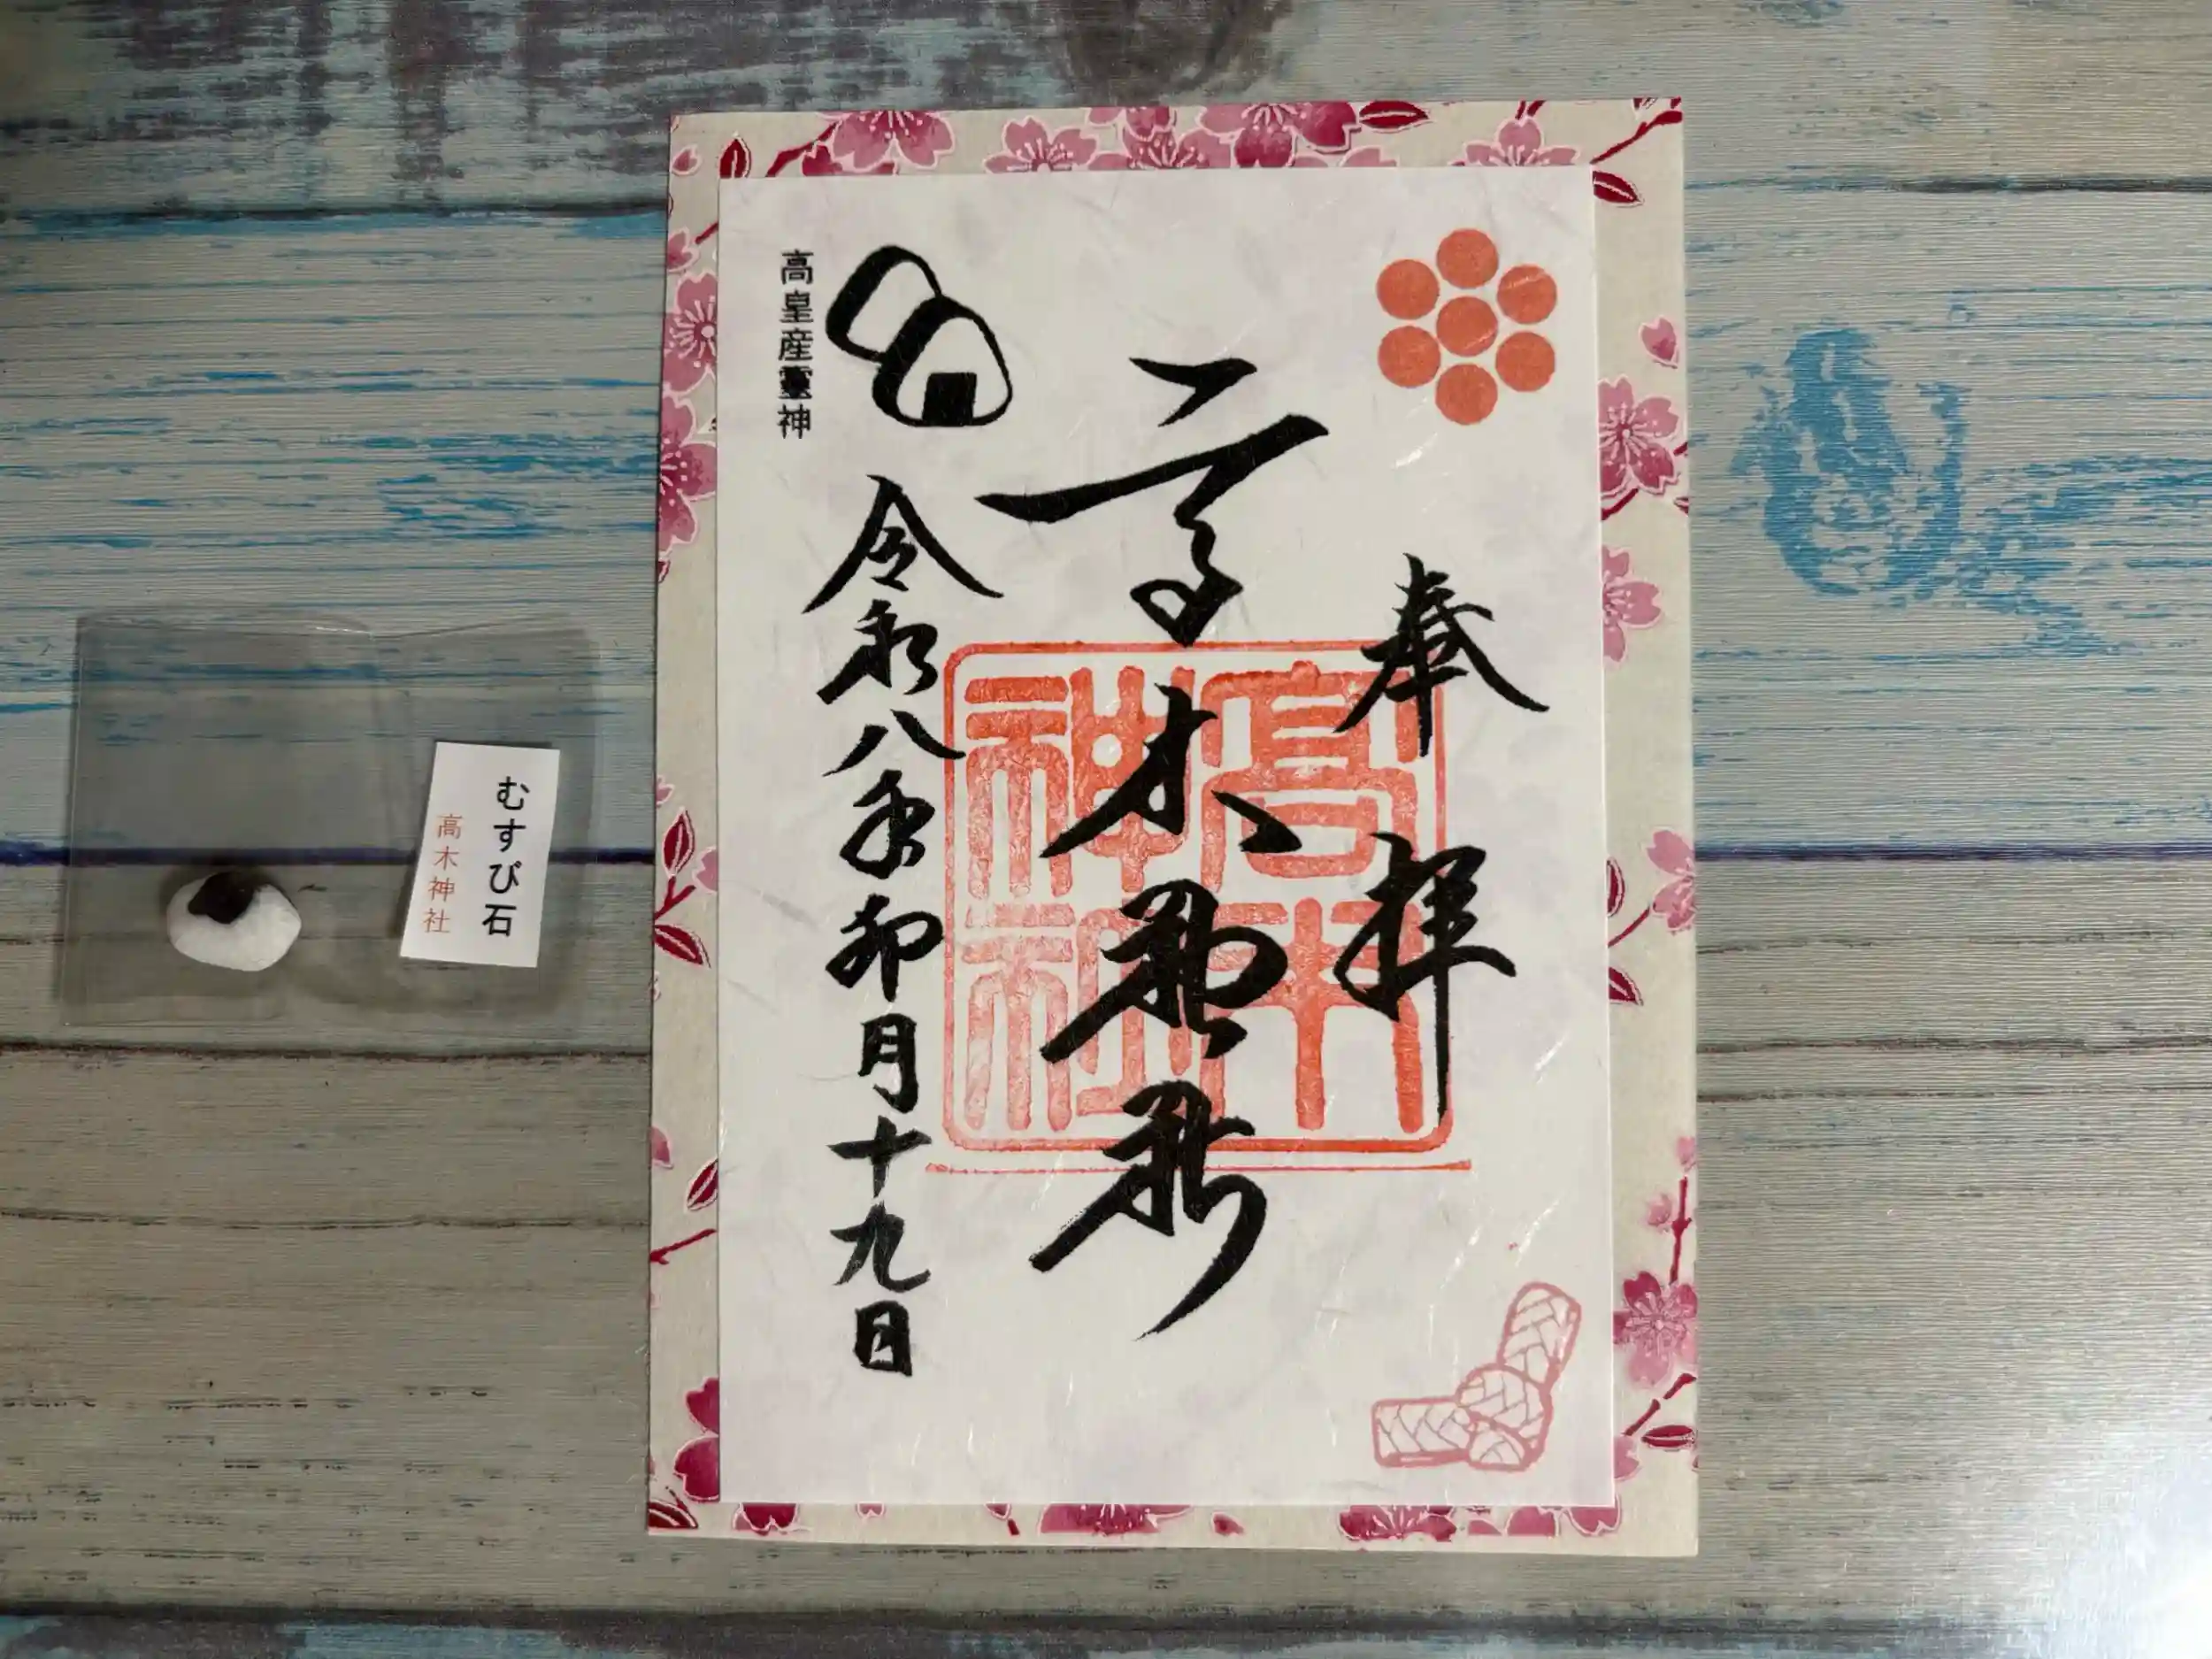 奉拝
高木神社
高木神社
令和八年卯月十九日
高皇産靈神
むすび石
高木神社